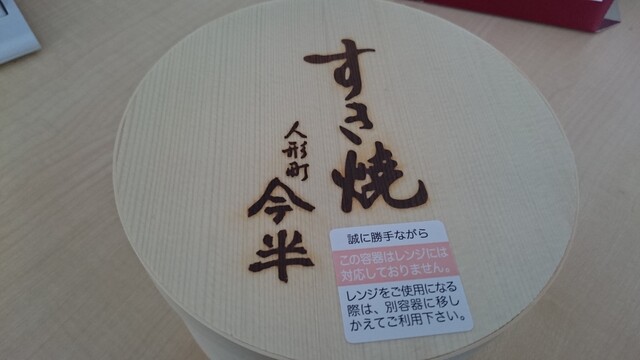 すき焼
人形町
今半
誠に勝手ながら
この容器はレンジには
対応しておりません。
レンジをご使用になる
際は、別容器に移し
かえてご利用下さい。